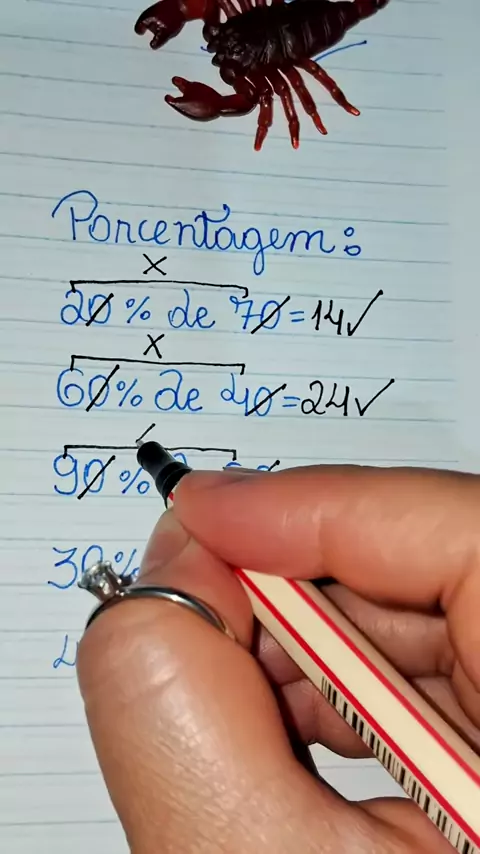 Porcentagem:
x
20% de 70=14✓
x
60% de 40=24✓
90%
30%